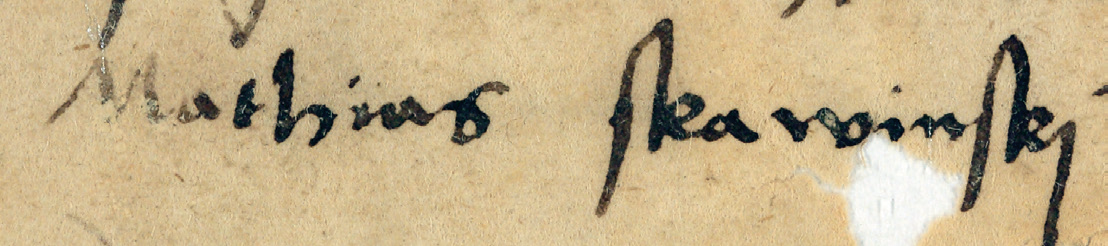 Mathias skawinskj